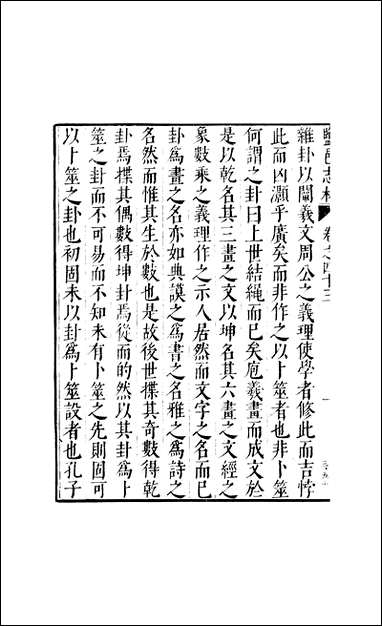 鹽邑志林 卷之四十三 一
雜卦以闡義文周公之義理使學者修此而吉悖
此而凶灝乎廣矣而非作之以卜筮者也非卜筮
何謂之卦曰上世結繩而已矣庖羲畫而成文於
是以乾名其三畫之文以坤名其六畫之文經之
象數乘之義理作之示人居然而文字之名而已
卦爲畫之名亦如典謨之爲書之名雅之爲詩之
名然而惟其生於數也是故後世揲其奇數得乾
卦焉揲其偶數得坤卦焉從而的然以其卦爲卜
筮之卦而不可易而不知未有卜筮之先則固可
以卜筮之卦也初固未以卦爲卜筮設者也孔子